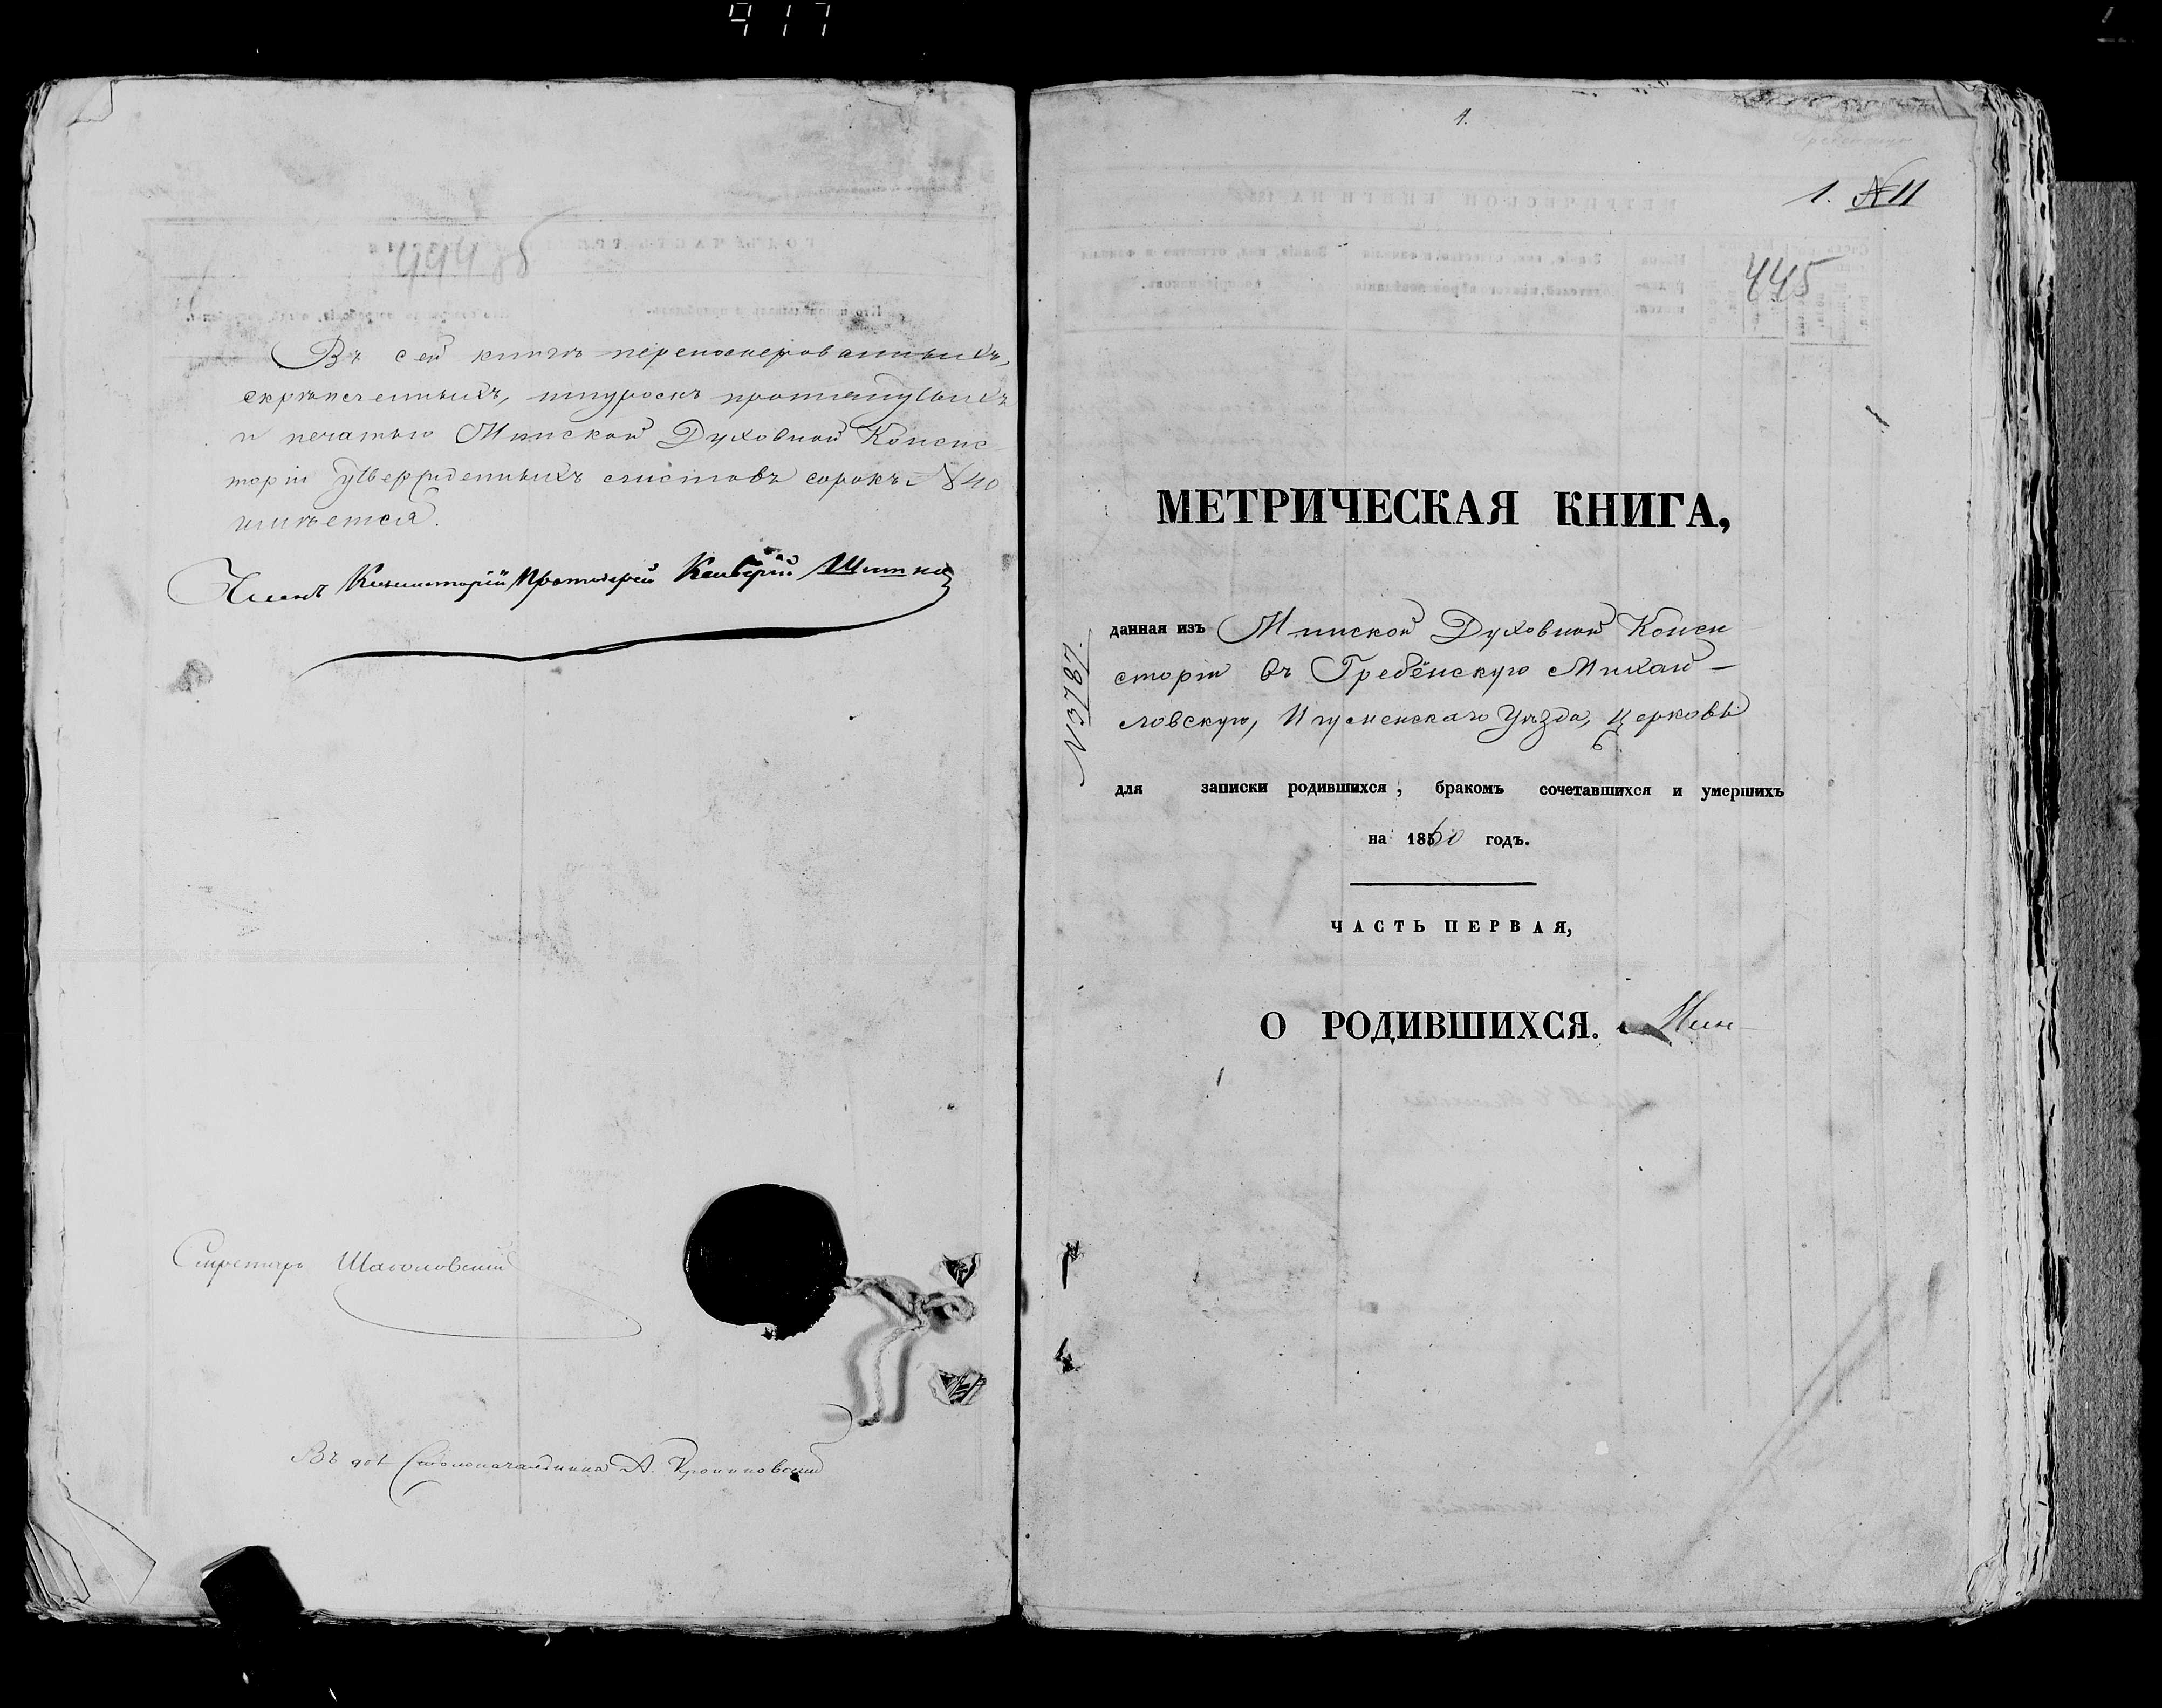 917
444 об
Въ сей книгѣ перенумерованныхъ,
скрѣпленныхъ, шнуромъ протянутыхъ
и печатью Минской Духовной Консис-
торіи утвержденныхъ листовъ сорокъ № 40
имѣется.
Членъ Консисторіи Протоіерей
Секретарь
Въ дол Столоначальника А.
1.
1. № 11
445
МЕТРИЧЕСКАЯ КНИГА,
данная изъ Минской Духовной Конси
сторіи въ Гребёнскую Михай-
ловскую, Игуменскаго Уѣзда, Церковь
№ 3787.
для записки родившихся, бракомъ сочетавшихся и умершихъ
на 1860 годъ.
ЧАСТЬ ПЕРВАЯ,
О РОДИВШИХСЯ.